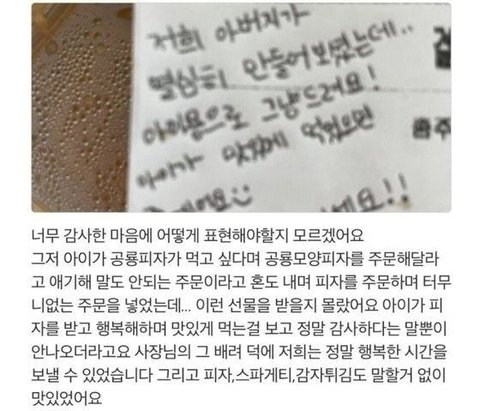 저희 아버지가
열심히 만들어 보셨는데..
아이용으로 그냥 드려요!
아이가 맛있게 먹었으면
너무 감사한 마음에 어떻게 표현해야할지 모르겠어요
그저 아이가 공룡피자가 먹고 싶다며 공룡모양피자를 주문해달라
고 얘기해 말도 안되는 주문이라고 혼도 내며 피자를 주문하며 터무
니없는 주문을 넣었는데... 이런 선물을 받을지 몰랐어요 아이가 피
자를 받고 행복해하며 맛있게 먹는걸 보고 정말 감사하다는 말뿐이
안나오더라고요 사장님의 그 배려 덕에 저희는 정말 행복한 시간을
보낼 수 있었습니다 그리고 피자,스파게티,감자튀김도 말할거 없이
맛있었어요